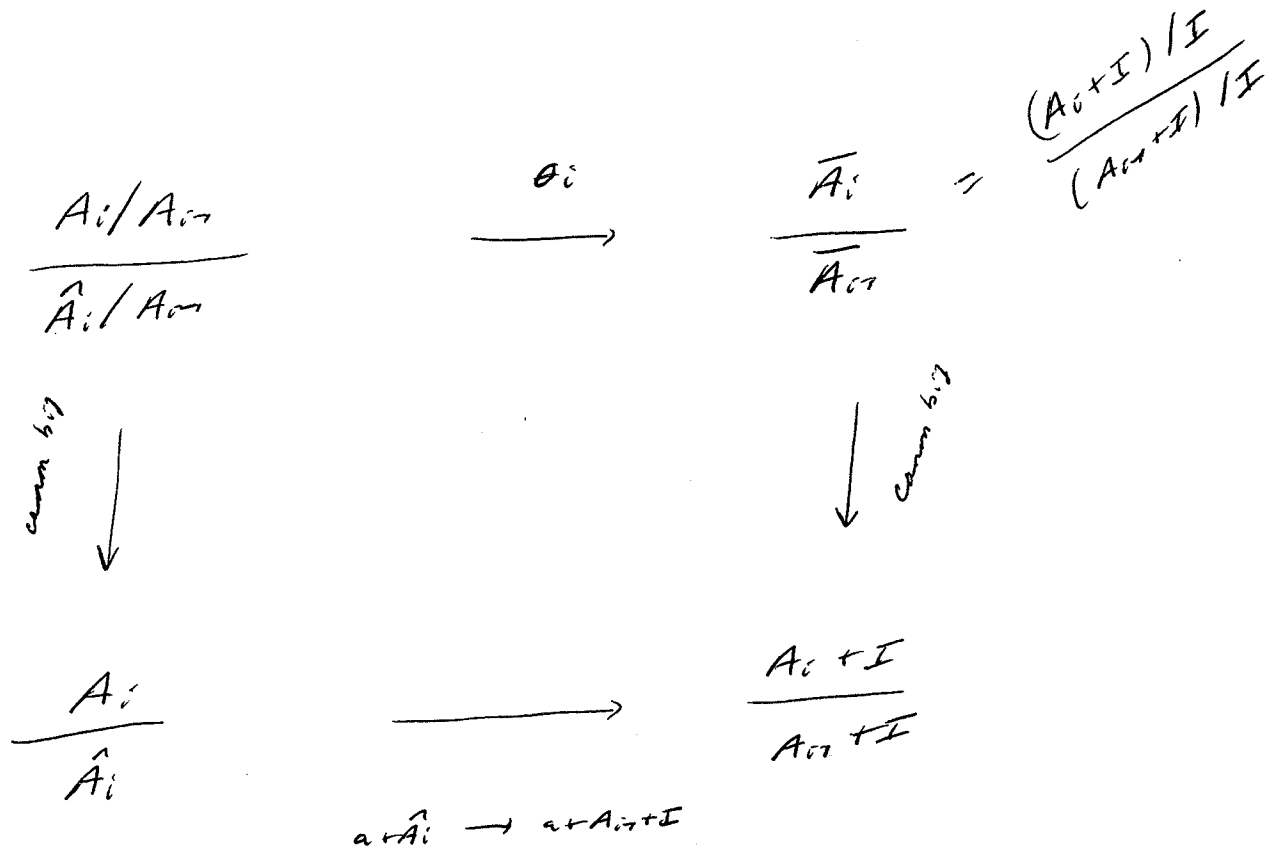 (A_i+I)/I
θ_i
A_i/A_{i-1} / Â_i/A_{i-1} → Ā_i / Ā_{i-1} = (A_i+I)/I / (A_{i-1}+I)/I
canon bij
canon bij
A_i / Â_i → A_i+I / A_{i-1}+I
a+Â_i → a+A_{i-1}+I